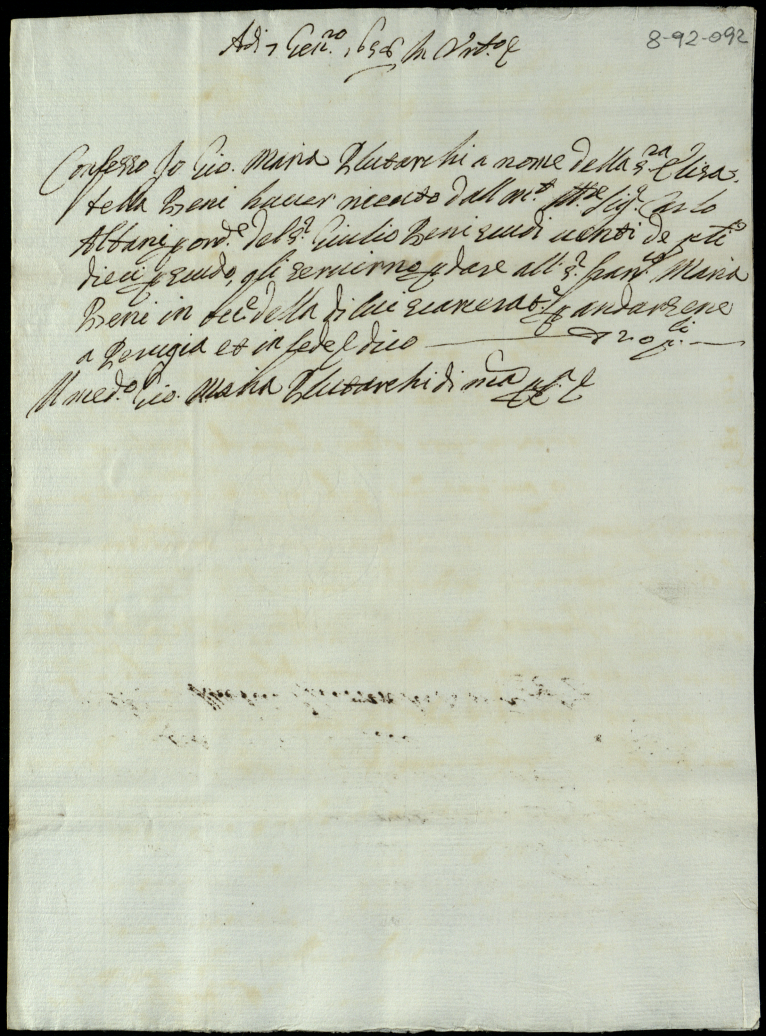 8-92-092
Adi 7 Gen.ro 1656 In Urb.o
Confesso Io Gio. Maria Plutarchi a nome della S.ra Elisa-
betta Beni haver riceuto dall m.to Ill.re Sig.r Carlo
Albani p ord.e del S.r Giulio Beni scudi venti de p.li
dieci p scudo, gli servirno p dare all S.r Fran.co Maria
Beni in occ.e della di lui scarcerat.e p andarsene
a Perugia et in fede dico 20 p.li
Il med.o Gio. Maria Plutarchi di m.a pp.a